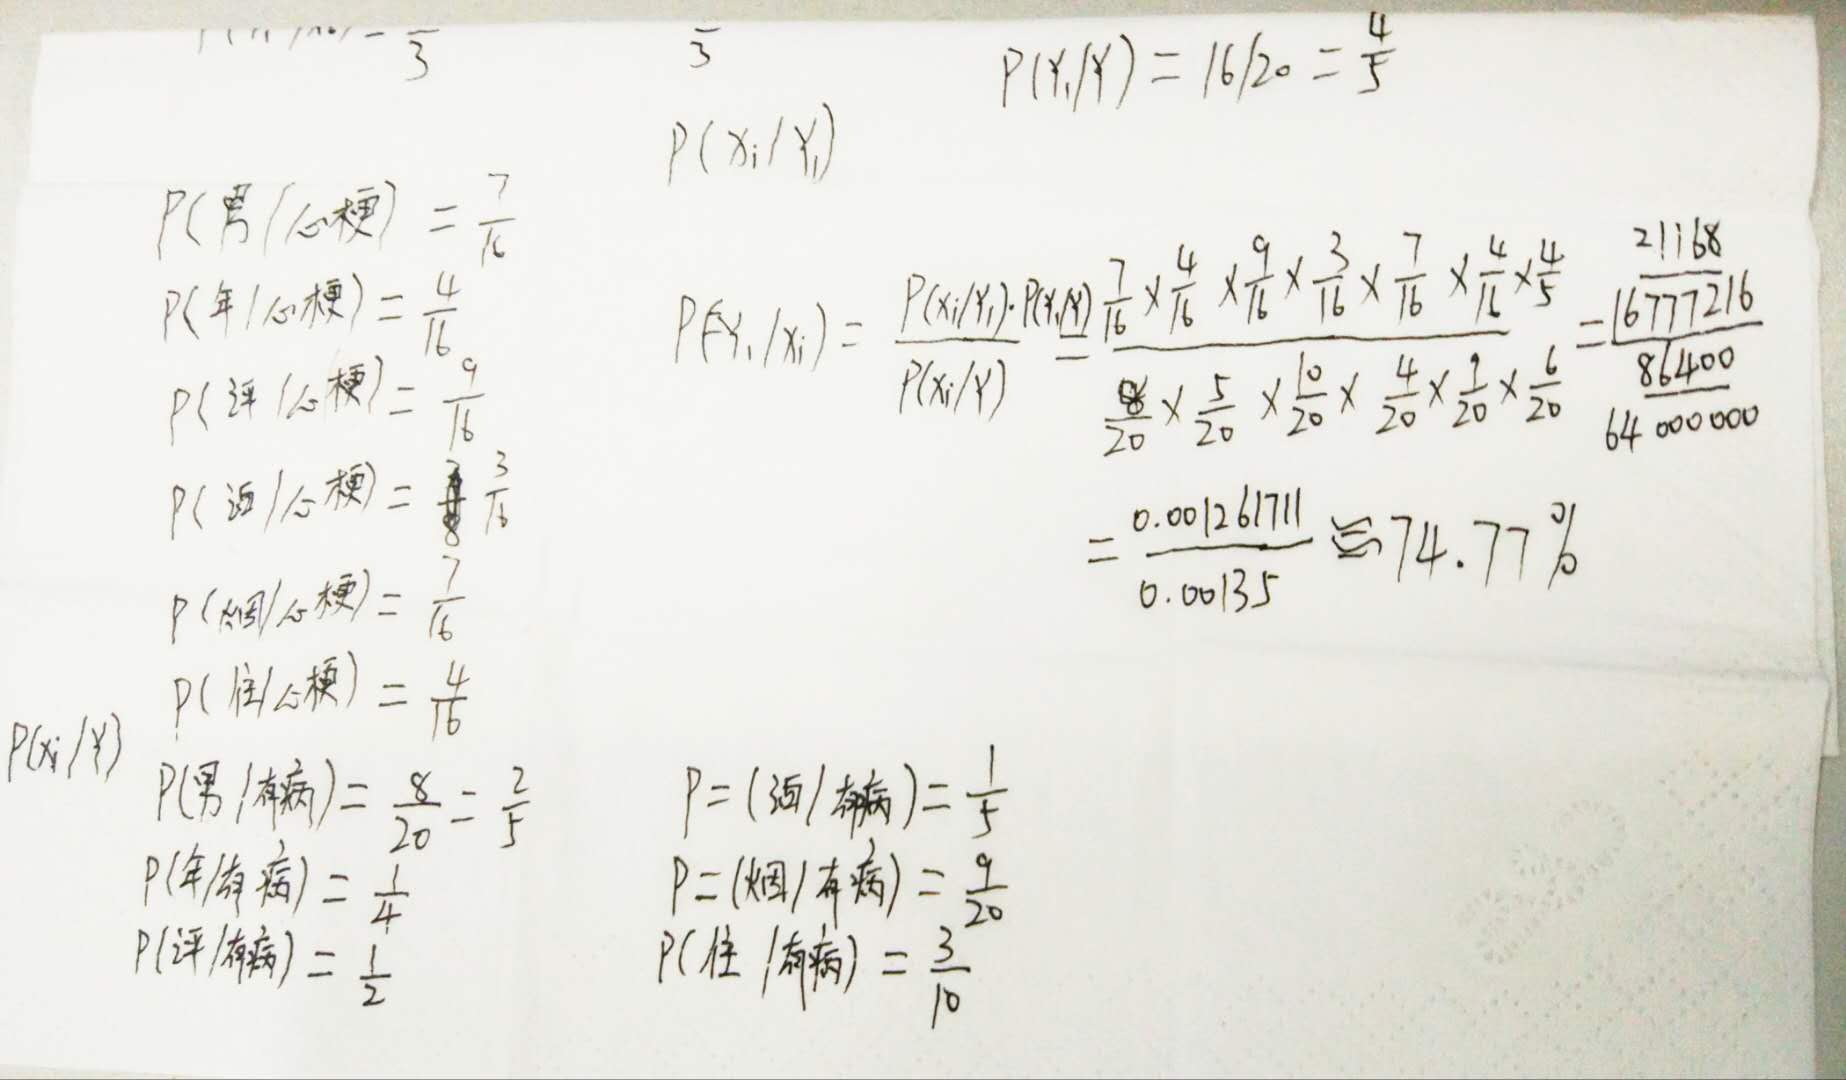 3
3
P(Y₁/Y) = 16/20 = 4/5
P(Xi/Y₁)
P(男/心梗) = 7/16
P(年/心梗) = 4/16
P(评/心梗) = 9/16
P(酒/心梗) = 3/16
P(烟/心梗) = 7/16
P(住/心梗) = 4/16
P(Y₁/Xi) = P(Xi/Y₁)·P(Y₁/Y) / P(Xi/Y) = 7/16 × 4/16 × 9/16 × 3/16 × 7/16 × 4/16 × 4/5 / 8/20 × 5/20 × 10/20 × 4/20 × 9/20 × 6/20 = 21168/16777216 / 86400/64000000
= 0.001261711/0.00135 ≌ 74.77%
P(Xi/Y)
P(男/有病) = 8/20 = 2/5
P(年/有病) = 1/4
P(评/有病) = 1/2
P=(酒/有病) = 1/5
P=(烟/有病) = 9/20
P(住/有病) = 3/10